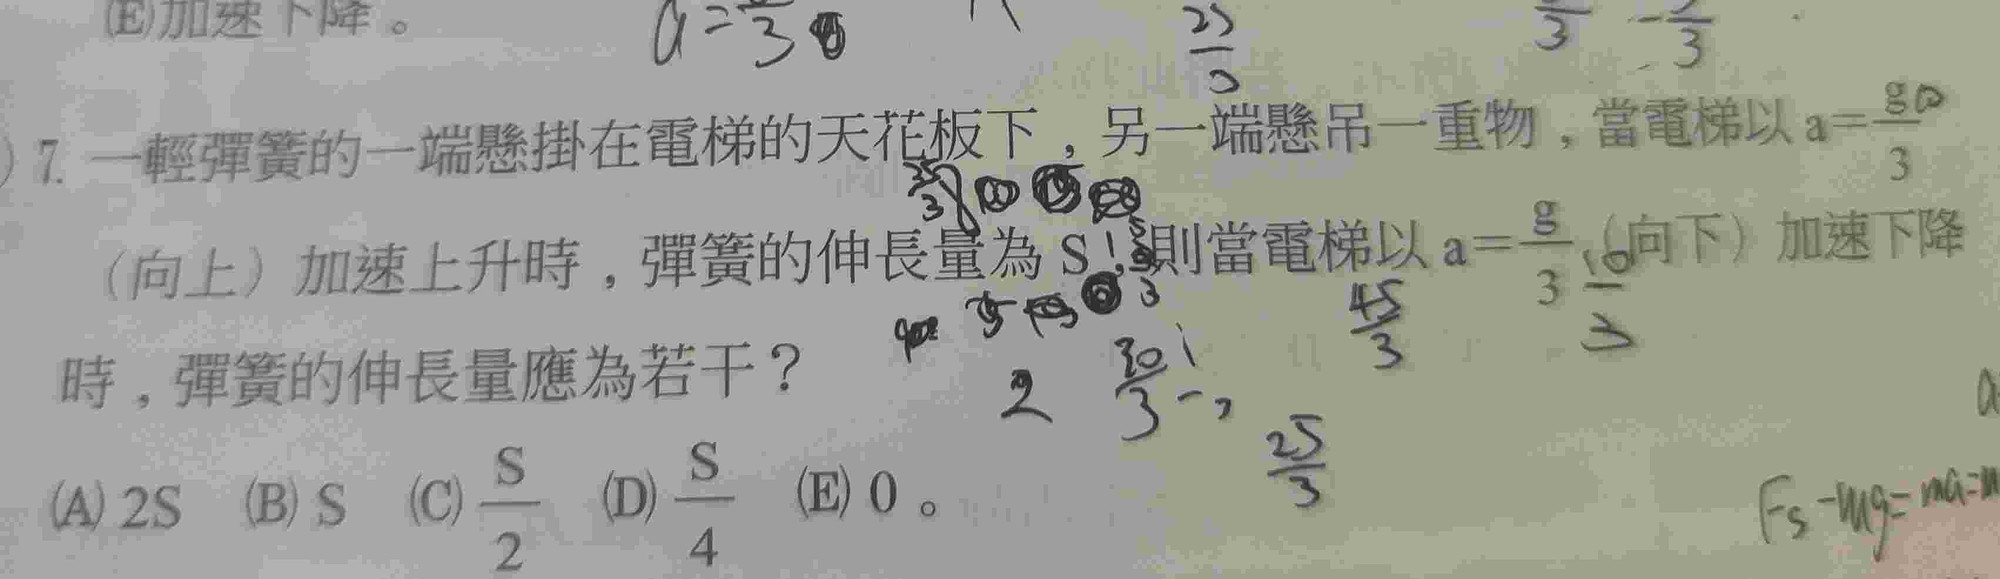 (E)加速下降。
a=
7. 一輕彈簧的一端懸掛在電梯的天花板下，另一端懸吊一重物，當電梯以 a=g/3
（向上）加速上升時，彈簧的伸長量為 S，則當電梯以 a=g/3（向下）加速下降
時，彈簧的伸長量應為若干？
45/3
2
25/3
(A) 2S (B) S (C) S/2 (D) S/4 (E) 0 。
Fs-mg=ma=